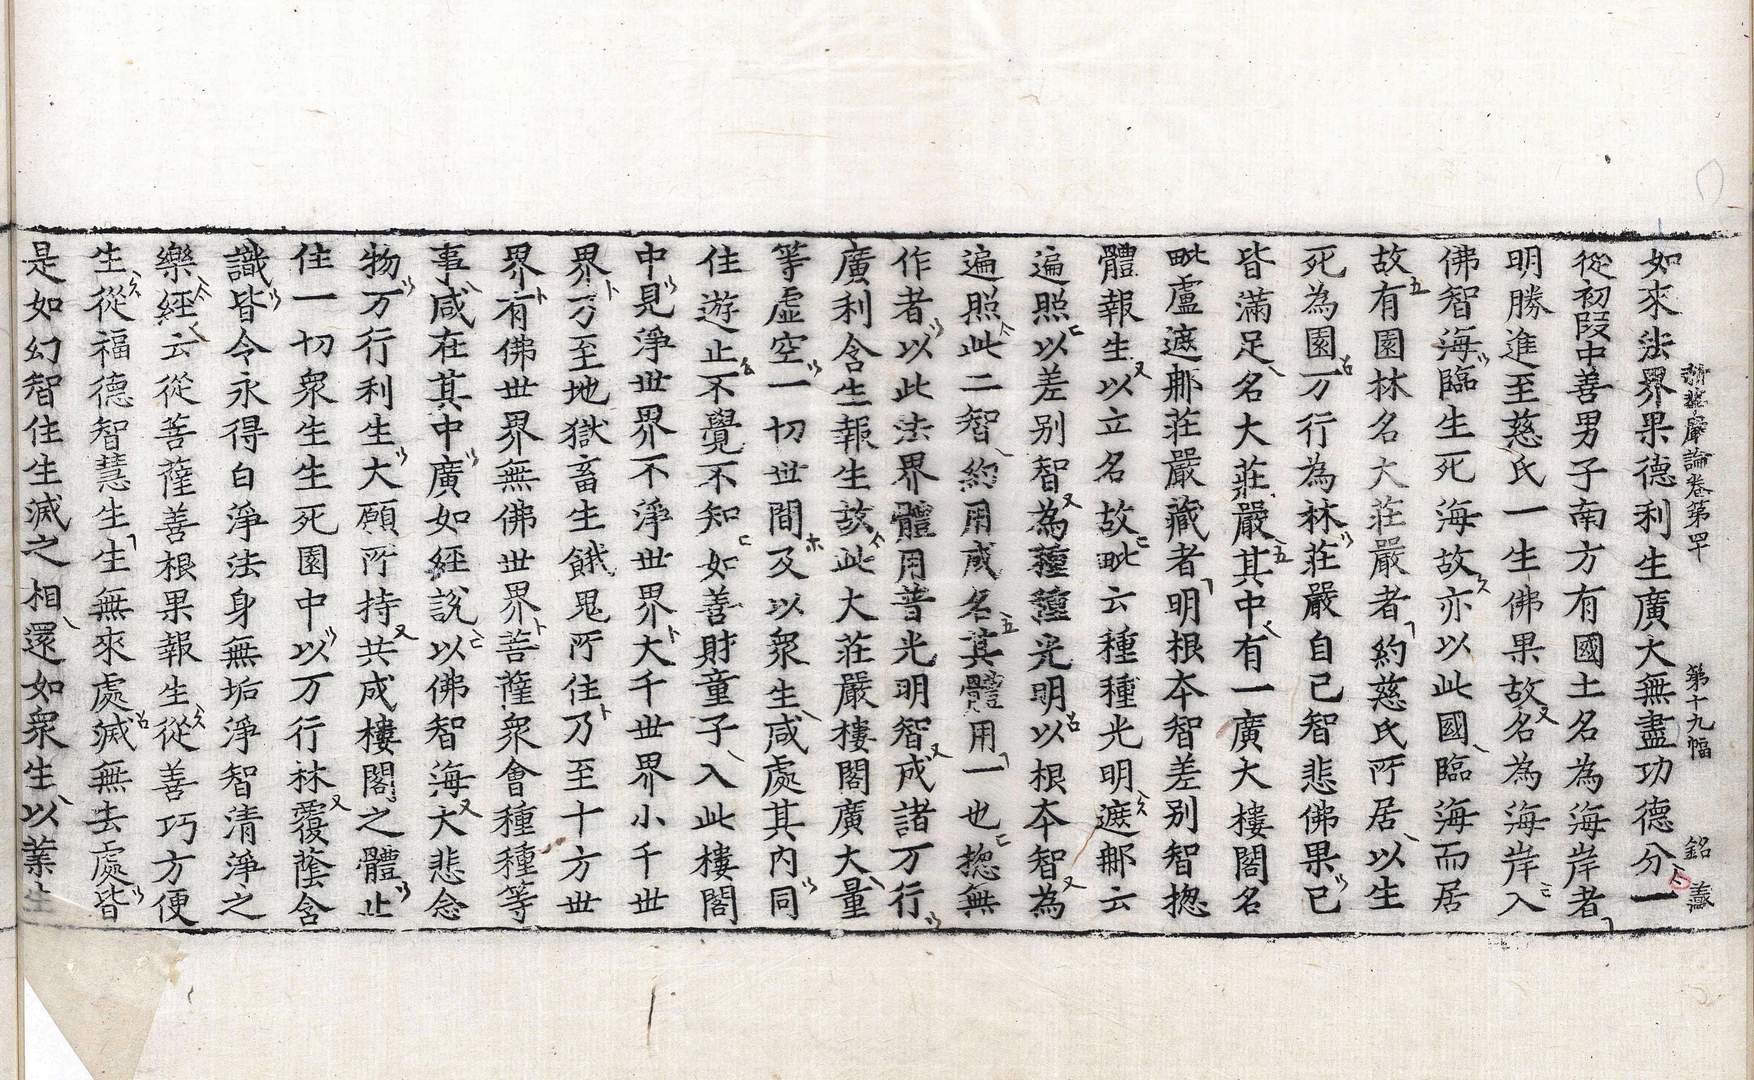 新華嚴論卷第四十 第十九幅 銘 義
如來法界果德利生廣大無盡功德分一
從初段中善男子南方有國土名為海岸者
明勝進至慈氏一生佛果故名為海岸入
佛智海臨生死海故亦以此國臨海而居
故有園林名大莊嚴者約慈氏所居以生
死為園万行為林莊嚴自己智悲佛果已
皆滿足名大莊嚴其中有一廣大樓閣名
毗盧遮那莊嚴藏者明根本智差別智揔
體報生以立名故毗云種種光明遮那云
遍照以差別智為種種光明以根本智為
遍照此二智約用咸名其體用一也揔無
作者以此法界體用普光明智成諸万行
廣利含生報生該此大莊嚴樓閣廣大量
等虛空一切世間及以眾生咸處其內同
住遊止不覺不知如善財童子入此樓閣
中見淨世界不淨世界大千世界小千世
界乃至地獄畜生餓鬼所住乃至十方世
界有佛世界無佛世界菩薩眾會種種等
事咸在其中廣如經說以佛智海大悲念
物万行利生大願所持共成樓閣之體止
住一切眾生生死園中以万行林覆蔭含
識皆令永得白淨法身無垢淨智清淨之
樂經云從菩薩善根果報生從善巧方便
生從福德智慧生生無來處滅無去處皆
是如幻智住生滅之相還如眾生以業生